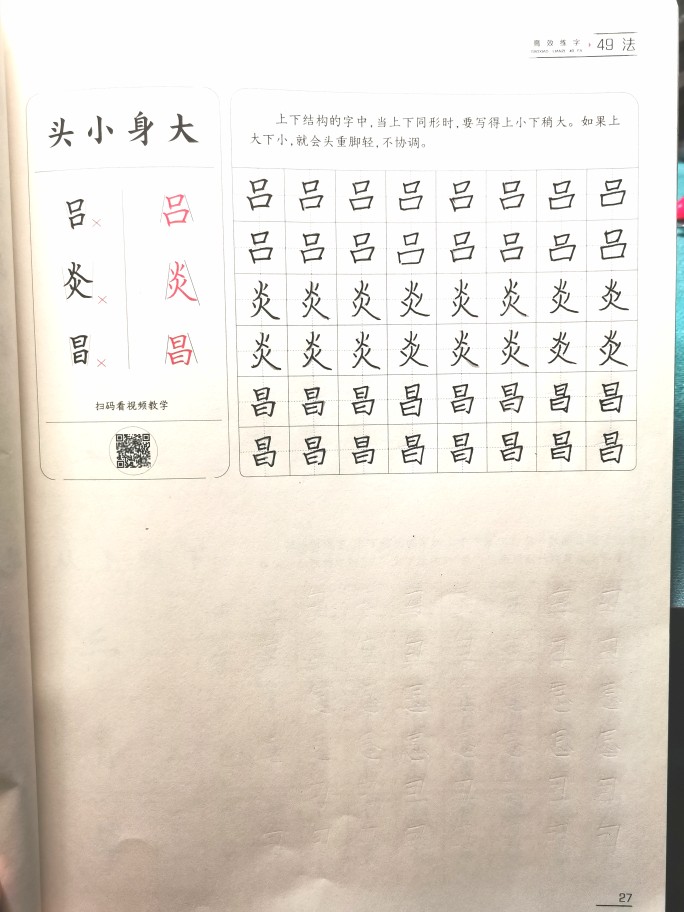 高效练字
49法
头小身大
上下结构的字中,当上下同形时,要写得上小下稍大。如果上
大下小,就会头重脚轻,不协调。
吕× 吕
炎× 炎
昌× 昌
扫码看视频教学
吕 吕 吕 吕 吕 吕 吕 吕
吕 吕 吕 吕 吕 吕 吕 吕
炎 炎 炎 炎 炎 炎 炎 炎
炎 炎 炎 炎 炎 炎 炎 炎
昌 昌 昌 昌 昌 昌 昌 昌
昌 昌 昌 昌 昌 昌 昌 昌
27